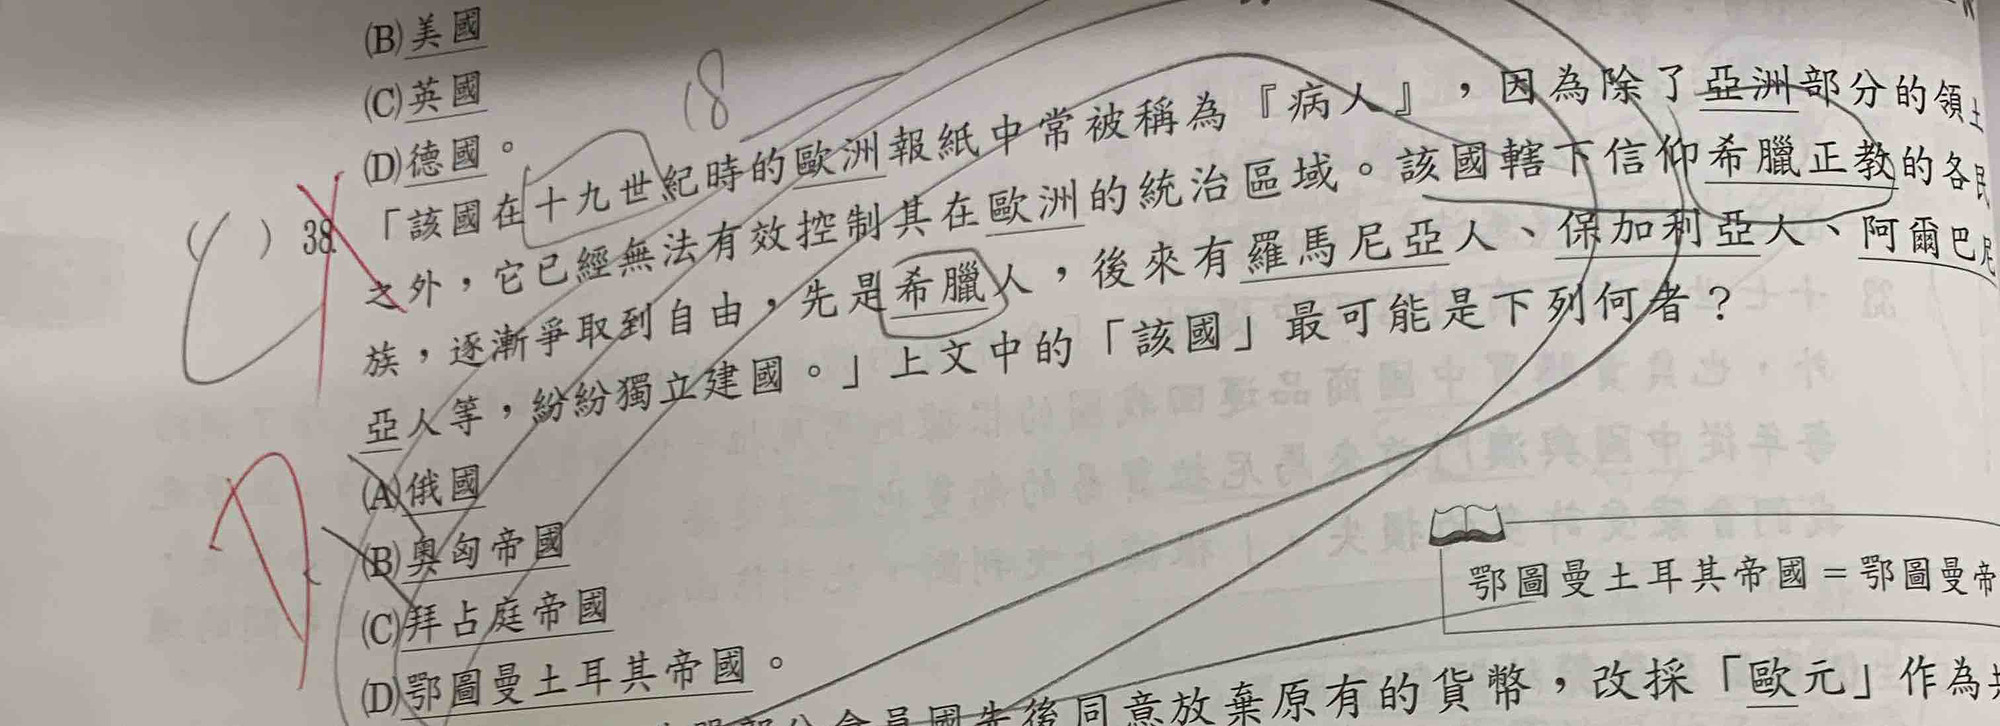 (B)美國
(C)英國
(D)德國。
18
( C ) 38. 「該國在十九世紀時的歐洲報紙中常被稱為『病人』,因為除了亞洲部分的領土
之外,它已經無法有效控制其在歐洲的統治區域。該國轄下信仰希臘正教的各民
族,逐漸爭取到自由,先是希臘人,後來有羅馬尼亞人、保加利亞人、阿爾巴尼
亞人等,紛紛獨立建國。」上文中的「該國」最可能是下列何者?
(A)俄國
(B)奧匈帝國
(C)拜占庭帝國
(D)鄂圖曼土耳其帝國。
D.
鄂圖曼土耳其帝國=鄂圖曼帝
會員國先後同意放棄原有的貨幣,改採「歐元」作為